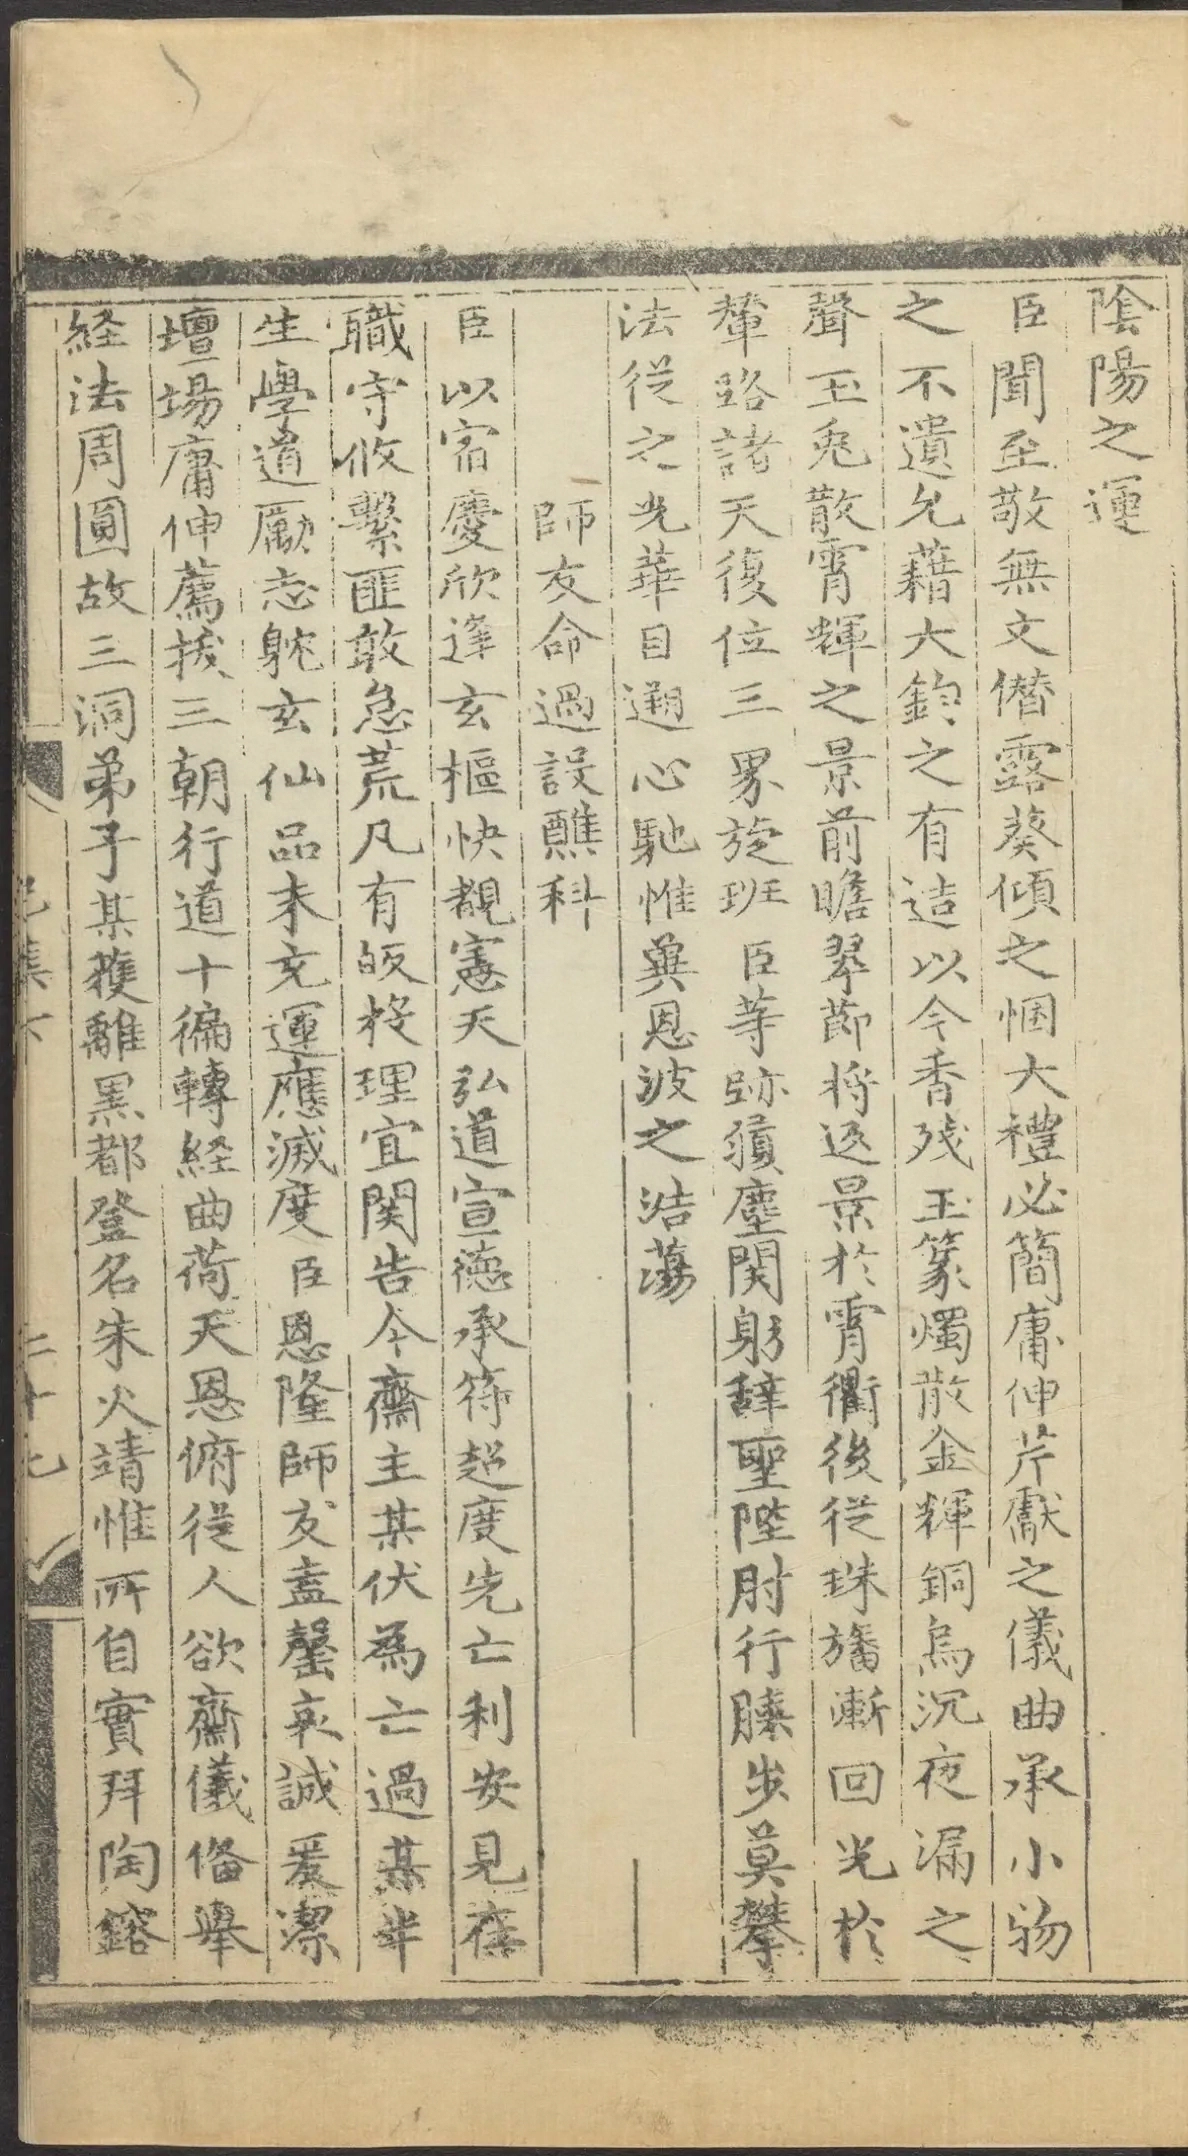 陰陽之運
臣聞至敬無文僭露葵傾之悃大禮必簡庸伸芹獻之儀曲承小物
之不遺允藉大鈞之有造以今香残玉篆燭散金輝銅烏沉夜漏之
聲玉兎散霄輝之景前瞻翠莭将返景於霄衢後従珠旛漸回光於
輦路諸天復位三界旋班臣等跡㱩塵関躬辞聖陛肘行膝步莫攀
法従之光華目遡心馳惟兾恩波之浩蕩
師友命過設醮科
臣以宿慶欣逢玄樞快覩憲天弘道宣德承符超度先亡利安見在
職守攸繫匪敢怠荒凡有皈投理宜関告今齋主某伏為亡過某半
生學道勵志躭玄仙品未充運應滅度臣恩隆師友盍罄哀誠爰潔
壇場庸伸薦㧞三朝行道十徧轉経曲荷天恩俯従人欲齋儀俻舉
経法周圓故三洞弟子某獲離黒都登名朱火靖惟所自實拜陶鎔
二十七